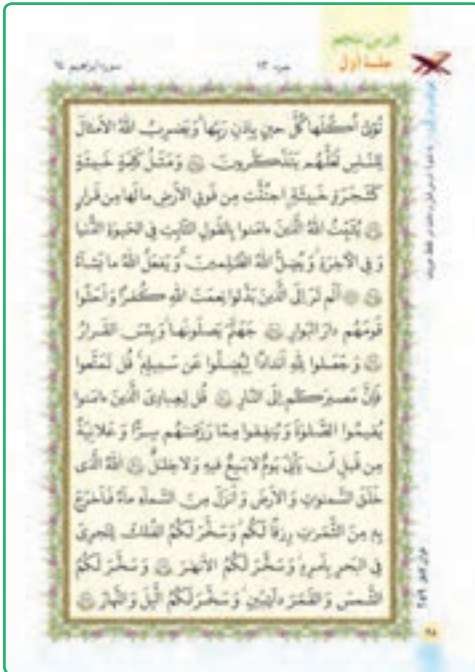 درس پنجم
جلسهٔ اوّل
جزء ١٣
سورهٔ ابراهیم ١٤
تُؤتی اُکُلَها کُلَّ حینٍ بِاِذنِ رَبِّها وَ یَضرِبُ اللهُ الاَمثالَ
لِلنّاسِ لَعَلَّهُم یَتَذَکَّرونَ وَ مَثَلُ کَلِمَةٍ خَبیثَةٍ
کَشَجَرَةٍ خَبیثَةٍ اجتُثَّت مِن فَوقِ الاَرضِ ما لَها مِن قَرارٍ
یُثَبِّتُ اللهُ الَّذینَ ءامَنوا بِالقَولِ الثّابِتِ فِی الحَیوةِ الدُّنیا
وَ فِی الآخِرَةِ وَ یُضِلُّ اللهُ الظّالِمینَ وَ یَفعَلُ اللهُ ما یَشاءُ
اَلَم تَرَ اِلَی الَّذینَ بَدَّلوا نِعمَتَ اللهِ کُفرًا وَ اَحَلّوا
قَومَهُم دارَ البَوارِ جَهَنَّمَ یَصلَونَها وَ بِئسَ القَرارُ
وَ جَعَلوا لِلّهِ اَندادًا لِیُضِلّوا عَن سَبیلِه قُل تَمَتَّعوا
فَاِنَّ مَصیرَکُم اِلَی النّارِ قُل لِعِبادِیَ الَّذینَ ءامَنوا
یُقیمُوا الصَّلوةَ وَ یُنفِقوا مِمّا رَزَقناهُم سِرًّا وَ عَلانِیَةً
مِن قَبلِ اَن یَأتِیَ یَومٌ لا بَیعٌ فیهِ وَ لا خِلالٌ اَللهُ الَّذی
خَلَقَ السَّماواتِ وَ الاَرضَ وَ اَنزَلَ مِنَ السَّماءِ ماءً فَاَخرَجَ
بِه مِنَ الثَّمَراتِ رِزقًا لَکُم وَ سَخَّرَ لَکُمُ الفُلکَ لِتَجرِیَ
فِی البَحرِ بِاَمرِه وَ سَخَّرَ لَکُمُ الاَنهارَ وَ سَخَّرَ لَکُمُ
الشَّمسَ وَ القَمَرَ دائِبَینِ وَ سَخَّرَ لَکُمُ الَّیلَ وَ النَّهارَ